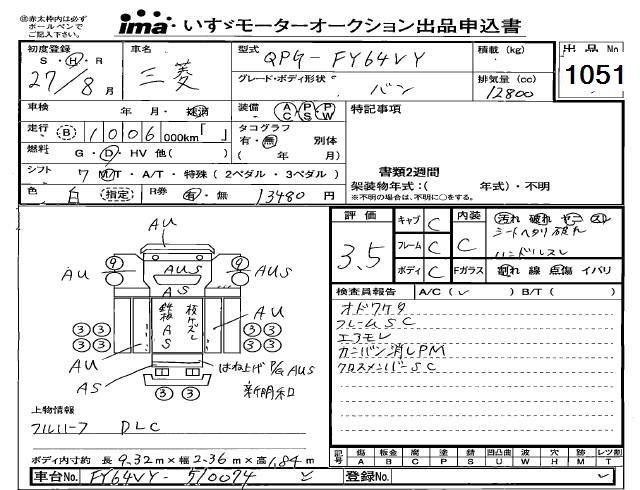 ㊟赤太枠内は必ず
ボールペンで
ご記入下さい。
ima いすゞモーターオークション出品申込書
初度登録 車名 型式 QPG-FY64VY 積載(kg) 出品No
S・H・R 三菱 グレード・ボディ形状 1051
27/8月 バン 排気量(cc)
12800
車検 年 月・抹消 装備 AC PS PW 特記事項
走行 B 1006000km「 」 タコグラフ
有・無 別体
燃料 G・D・HV 他( ) ( 年 月)
シフト 7 MT・A/T・特殊(2ペダル・3ペダル) 書類2週間
架装物年式:( 年式)・不明
色 白 指定 R券 有・無 13480円 ※不明の場合は、不明に○をする。
評価 キャブ C 内装 汚れ 破れ ヤニ スレ
3.5 フレーム C C シートヘタリ破れ
ハンドルスレ
ボディ C Fガラス 割れ 線 点傷 イバリ
AU
AU 9 AUS 9 AUS
AS
鉄板 AS 板ケズレ
3 3 AU 3 3
3 3 3 3
AU
AS はね上げP/G AUS
新明和
3 3
検査員報告 A/C( ) B/T( )
オドワケタ
フレームSC
エアモレ
カンバン消しPM
クロスメンバーSC
上物情報
フルハーフ DLC
ボディ内寸約 長9.32m×幅2.36m×高1.84m
記号 傷A 板金B 腐C 塗P 錆S 凹凸曲U 波W 穴H 跡M レツ割T
車台No. FY64VY-510074 登録No.